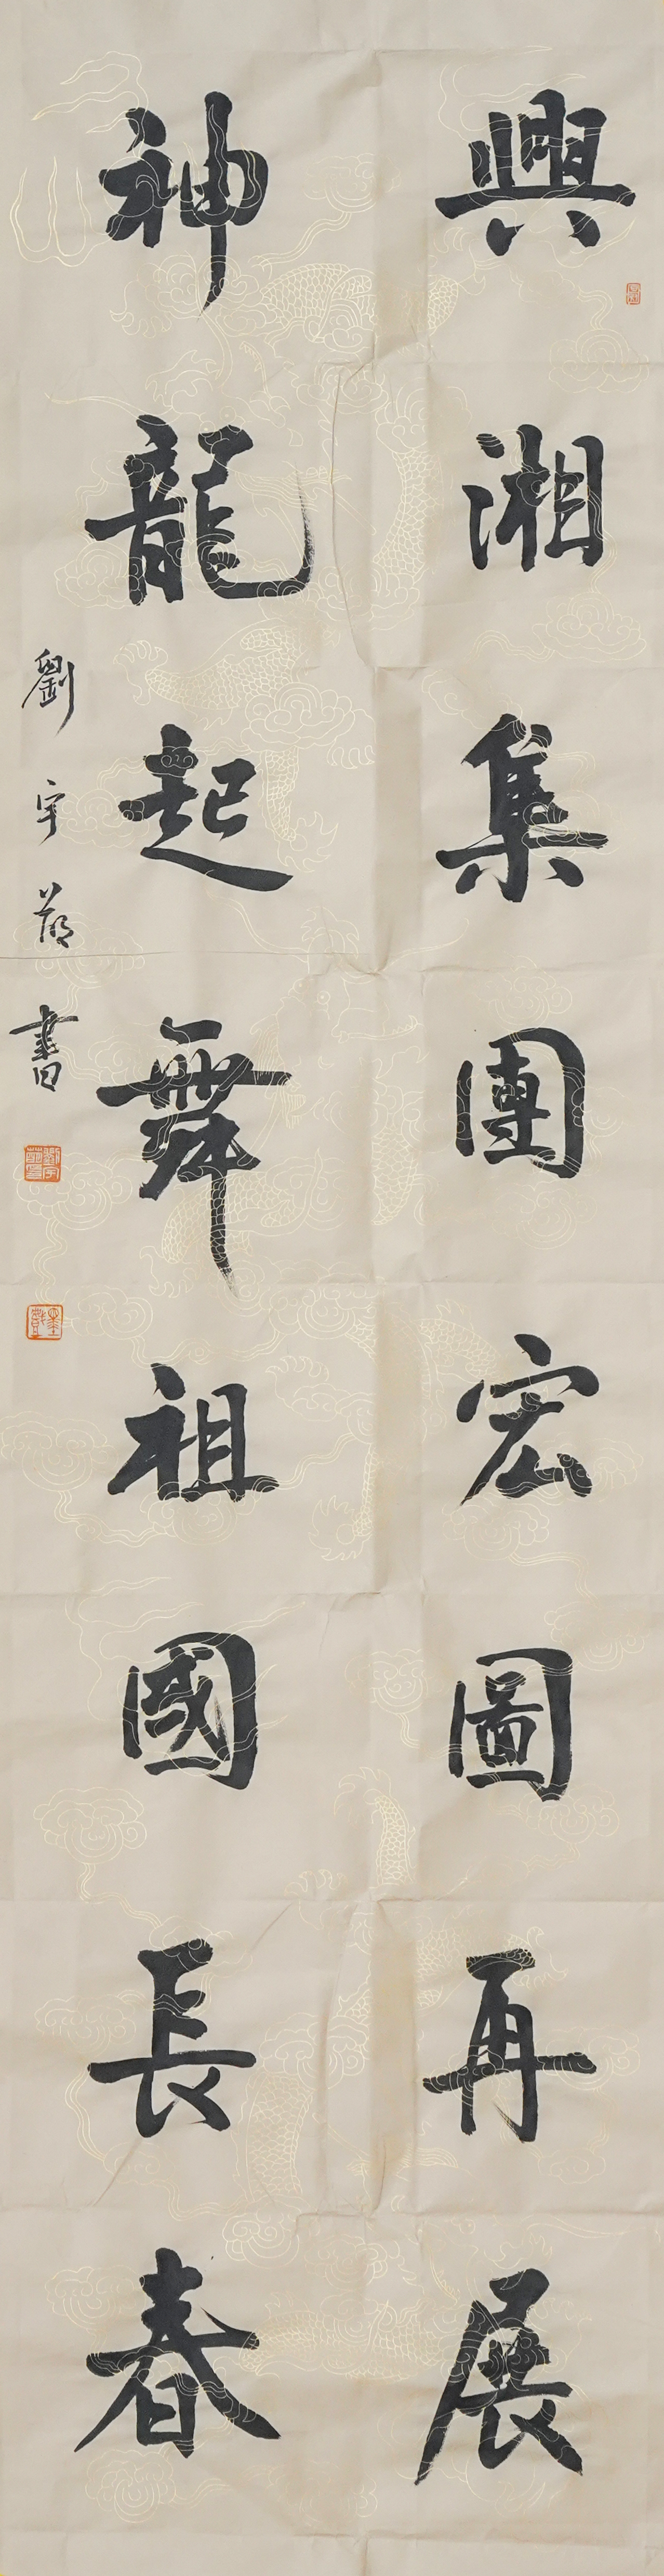 興湘集團宏圖再展
神龍起舞祖國長春
劉宇書